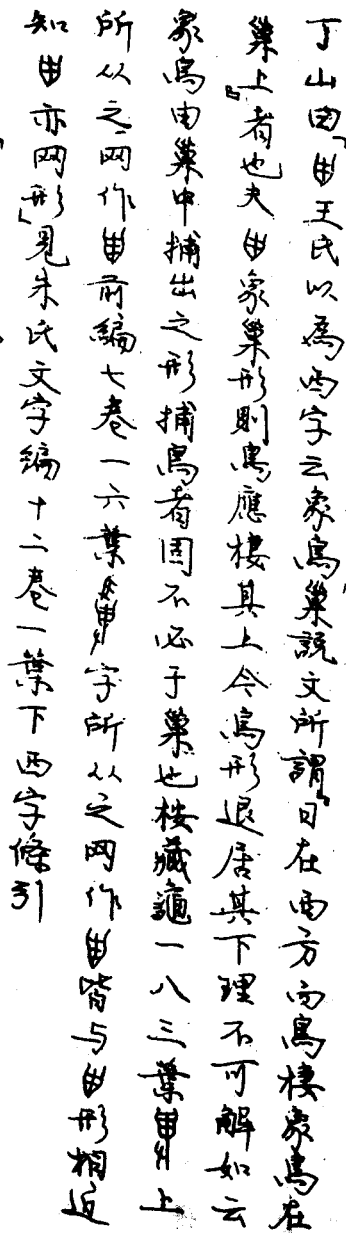 丁山曰「甶王氏以為西字云象鳥巢說文所謂『日在西方而鳥棲象鳥在
巢上』者也夫甶象巢形則鳥應棲其上今鳥形退居其下理不可解如云
象鳥由巢中捕出之形捕鳥者固不必于巢也按藏龜一八三葉上
所从之网作甶前編七卷一六葉字所从之网作甶皆与甶形相近
知甶亦网形」見朱氏文字編十二卷一葉下西字條引